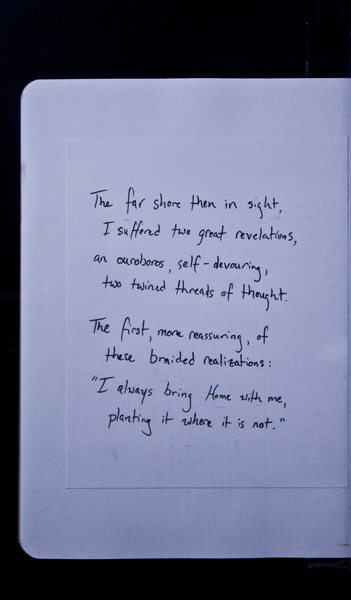 The far shore then in sight,
I suffered two great revelations,
an ouroboros, self-devouring,
two twined threads of thought.
The first, more reassuring, of
these braided realizations:
"I always bring Home with me,
planting it where it is not."